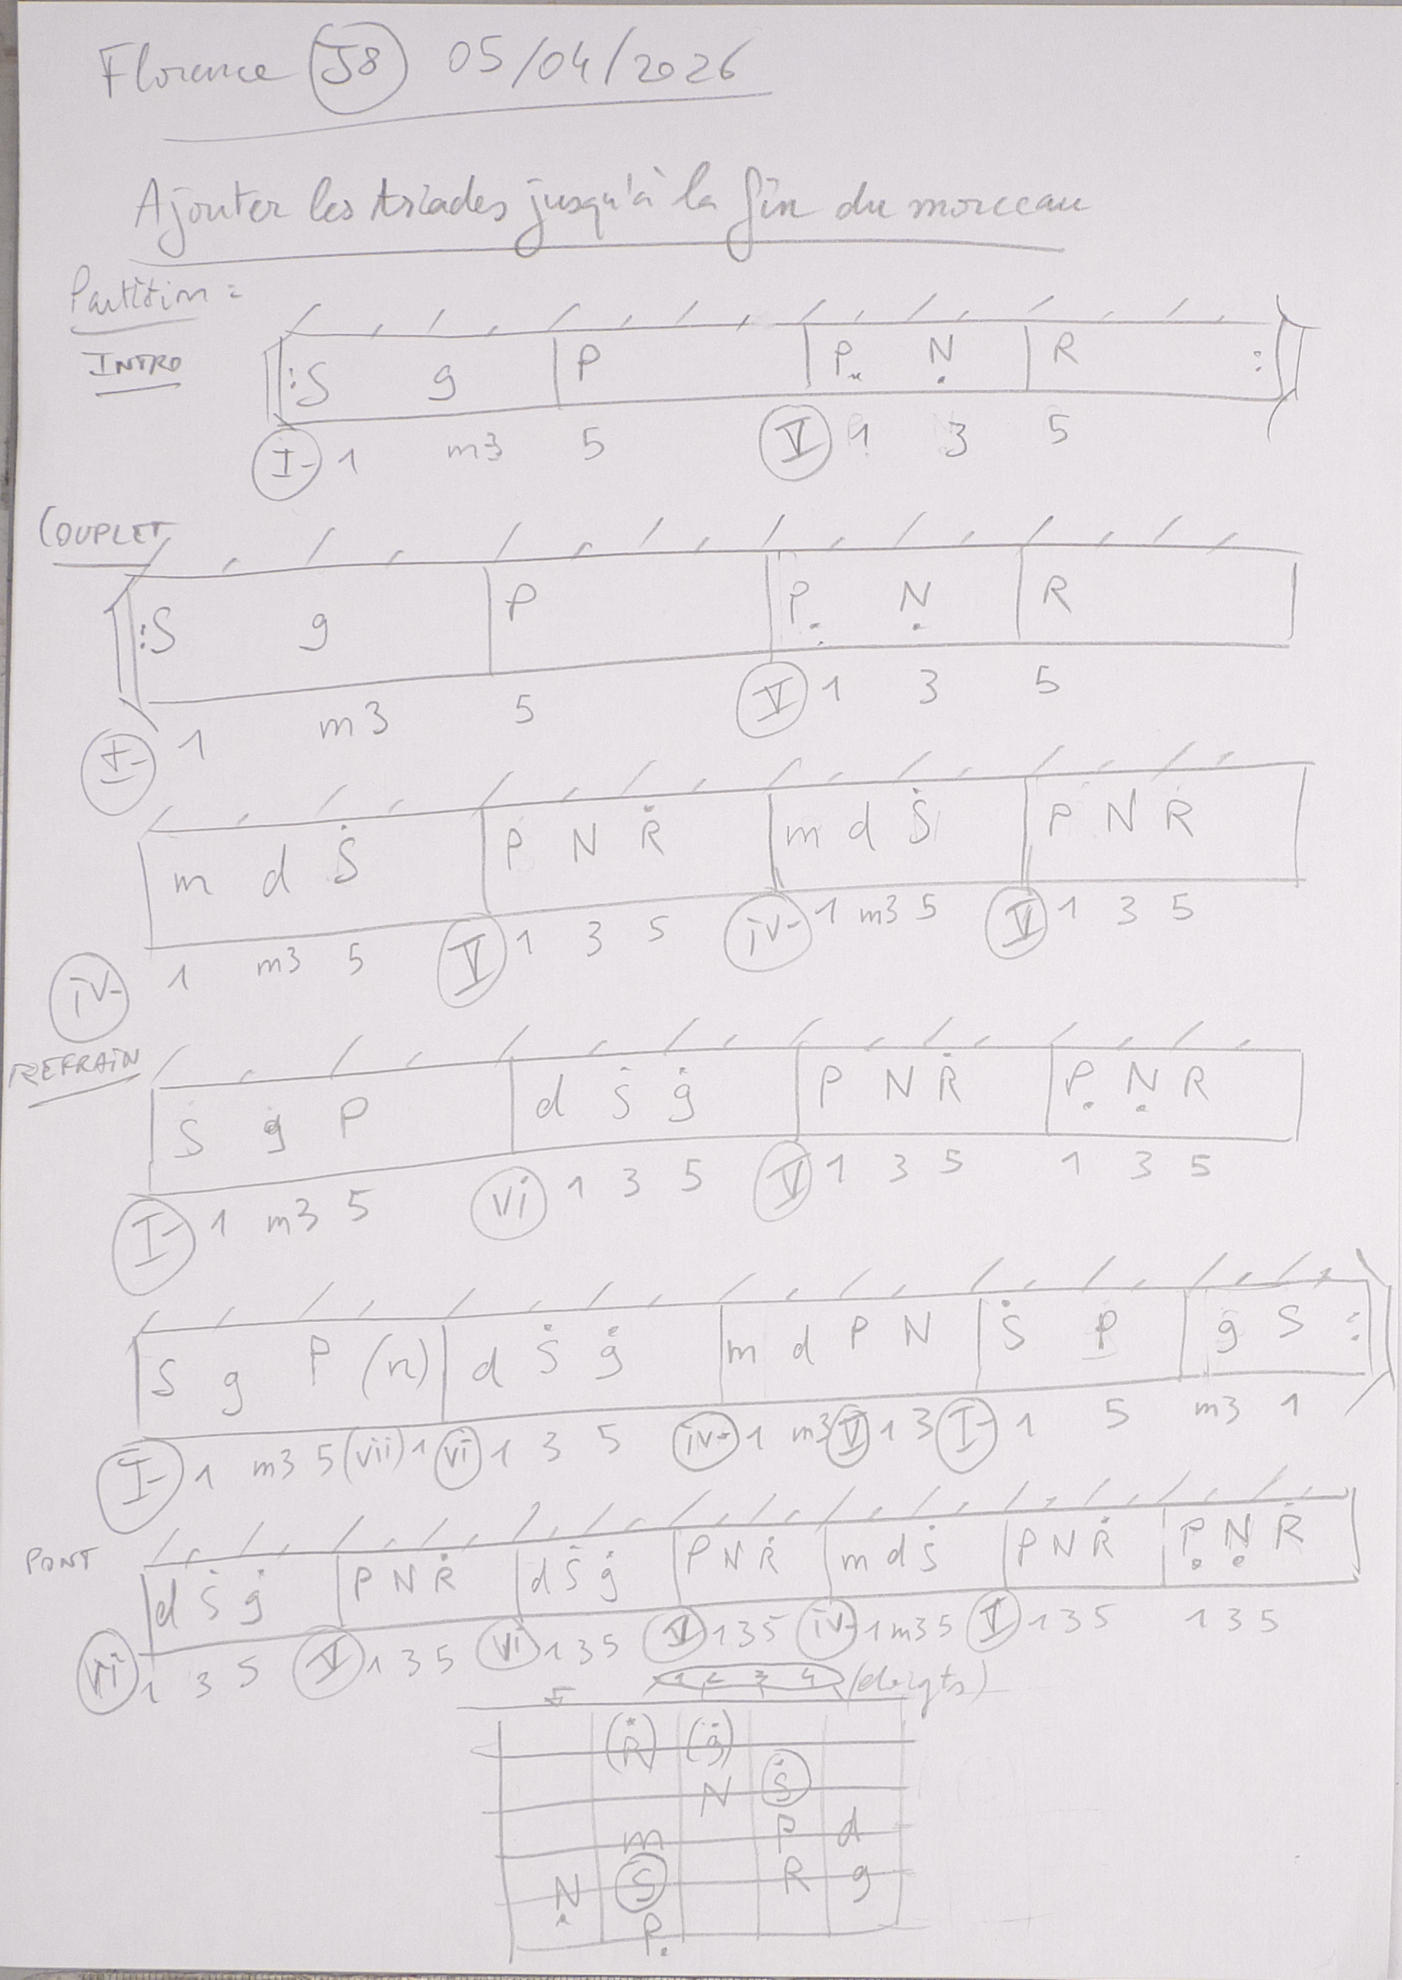 Florence J8 05/04/2026
Ajouter les triades jusqu'à la fin du morceau
Partition =
INTRO
:S g | P | P̣ Ṇ | R :
I- 1 m3 5 V 1 3 5
COUPLET
:S g | P | P̣ Ṇ | R
I- 1 m3 5 V 1 3 5
m d Ṡ | P N Ṙ | m d Ṡ | P N R
iv- 1 m3 5 V 1 3 5 iv- 1 m3 5 V 1 3 5
REFRAIN
S g P | d Ṡ ġ | P N Ṙ | P̣ Ṇ R
I- 1 m3 5 vi 1 3 5 V 1 3 5 1 3 5
S g P (n) | d Ṡ ġ | m d P N | Ṡ P | g S :
I- 1 m3 5 (vii) 1 vi 1 3 5 iv- 1 m3 V 1 3 I- 1 5 m3 1
PONT
d Ṡ ġ | P N Ṙ | d Ṡ ġ | P N Ṙ | m d Ṡ | P N Ṙ | P̣ Ṇ Ṙ
vi 1 3 5 V 1 3 5 vi 1 3 5 V 1 3 5 iv- 1 m3 5 V 1 3 5 1 3 5
1 2 3 4 (doigts)
5
(Ṙ) (ġ)
N Ṡ
m P d
Ṇ S R g
P̣